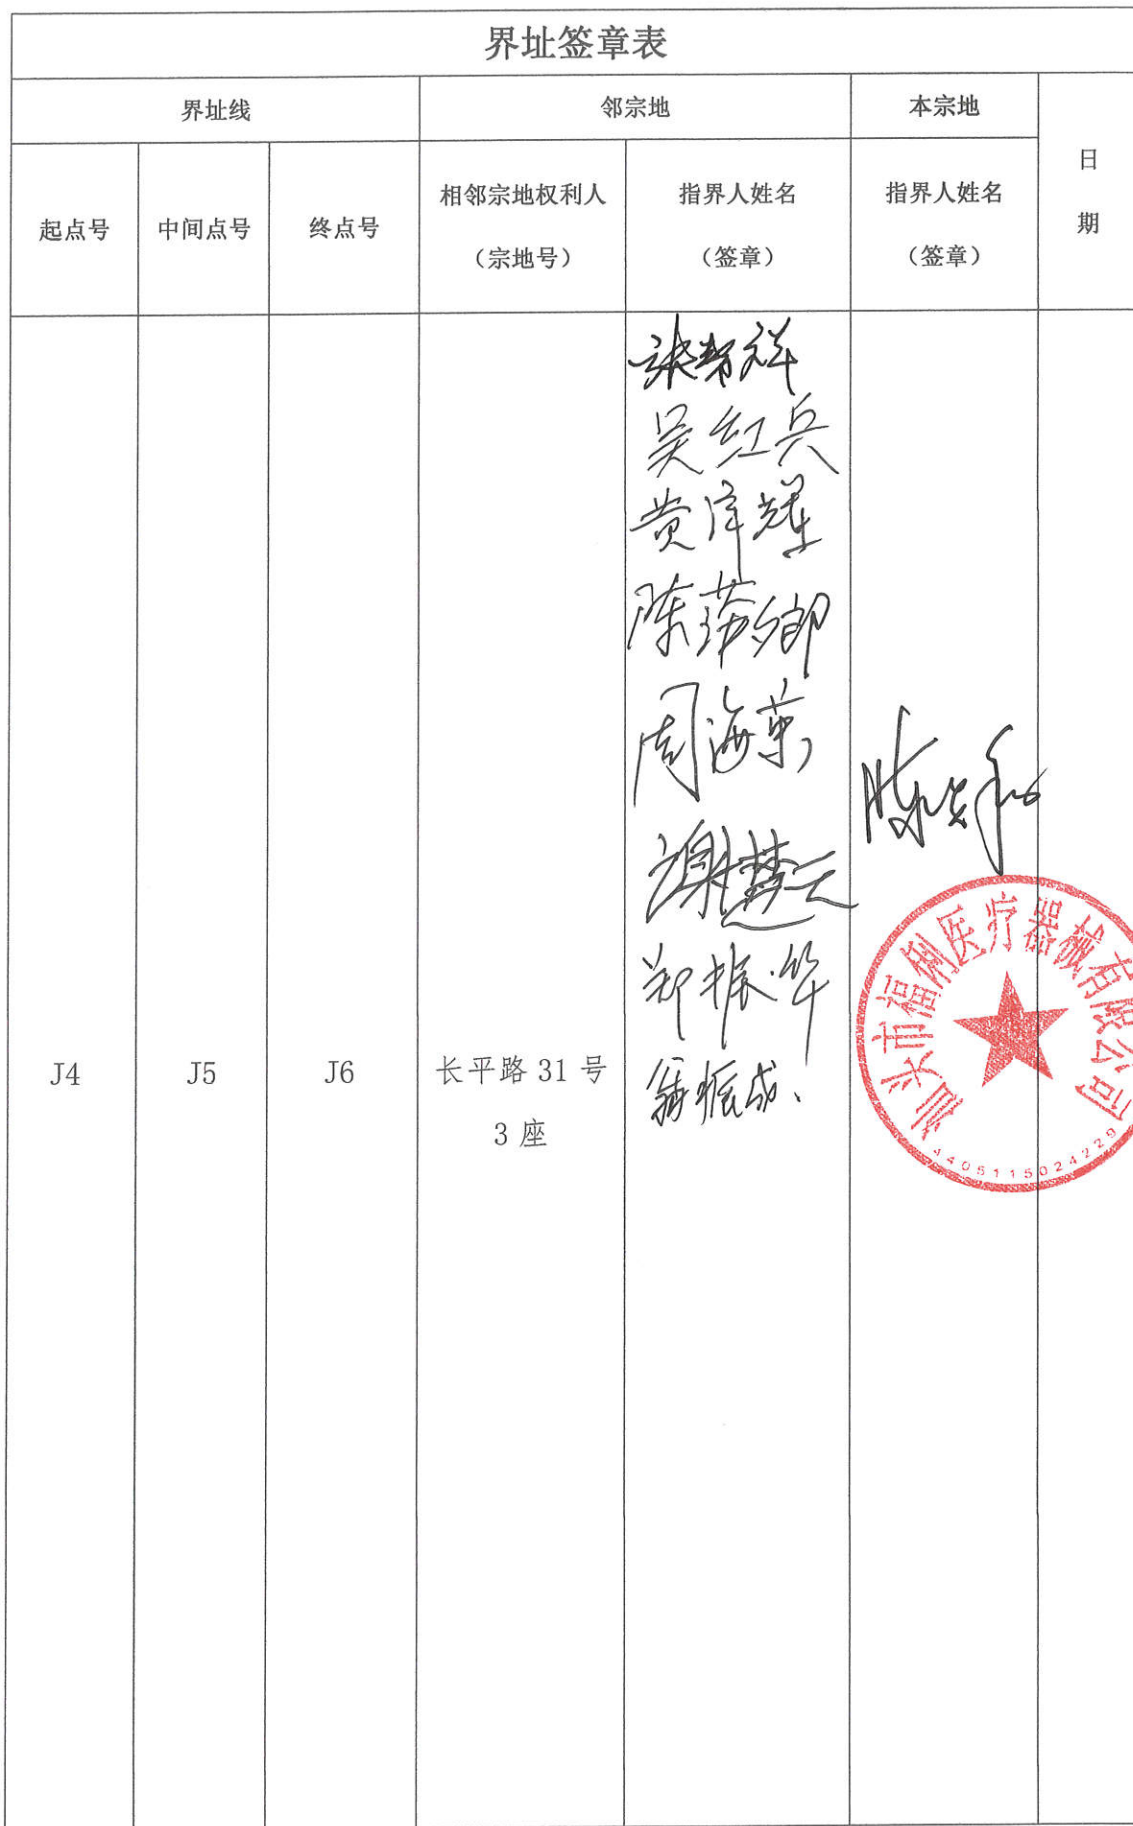 界址签章表
界址线 邻宗地 本宗地 日期
起点号 中间点号 终点号 相邻宗地权利人（宗地号） 指界人姓名（签章） 指界人姓名（签章）
J4 J5 J6 长平路 31 号
3 座
吴红兵
黄泽耀
陈萍卿
周海英
谢楚云
郑振华
振成
陈
汕头市福俐医疗器械有限公司
4405115024229